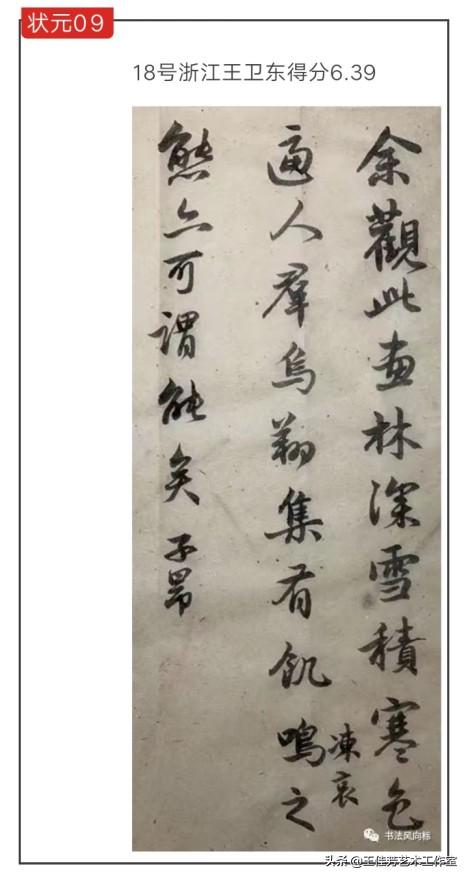 状元09
18号浙江王卫东得分6.39
余觀此畫林深雪積寒色
逼人羣烏翔集有飢凍哀鳴之
態亦可謂能矣 子昂
书法风向标
头条@王佳芳艺术工作室